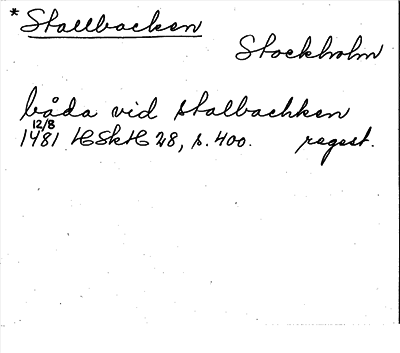 * Stallbacken
Stockholm
båda vid stalbachken
12/8
1481 HSkH 28, s. 400. regest.